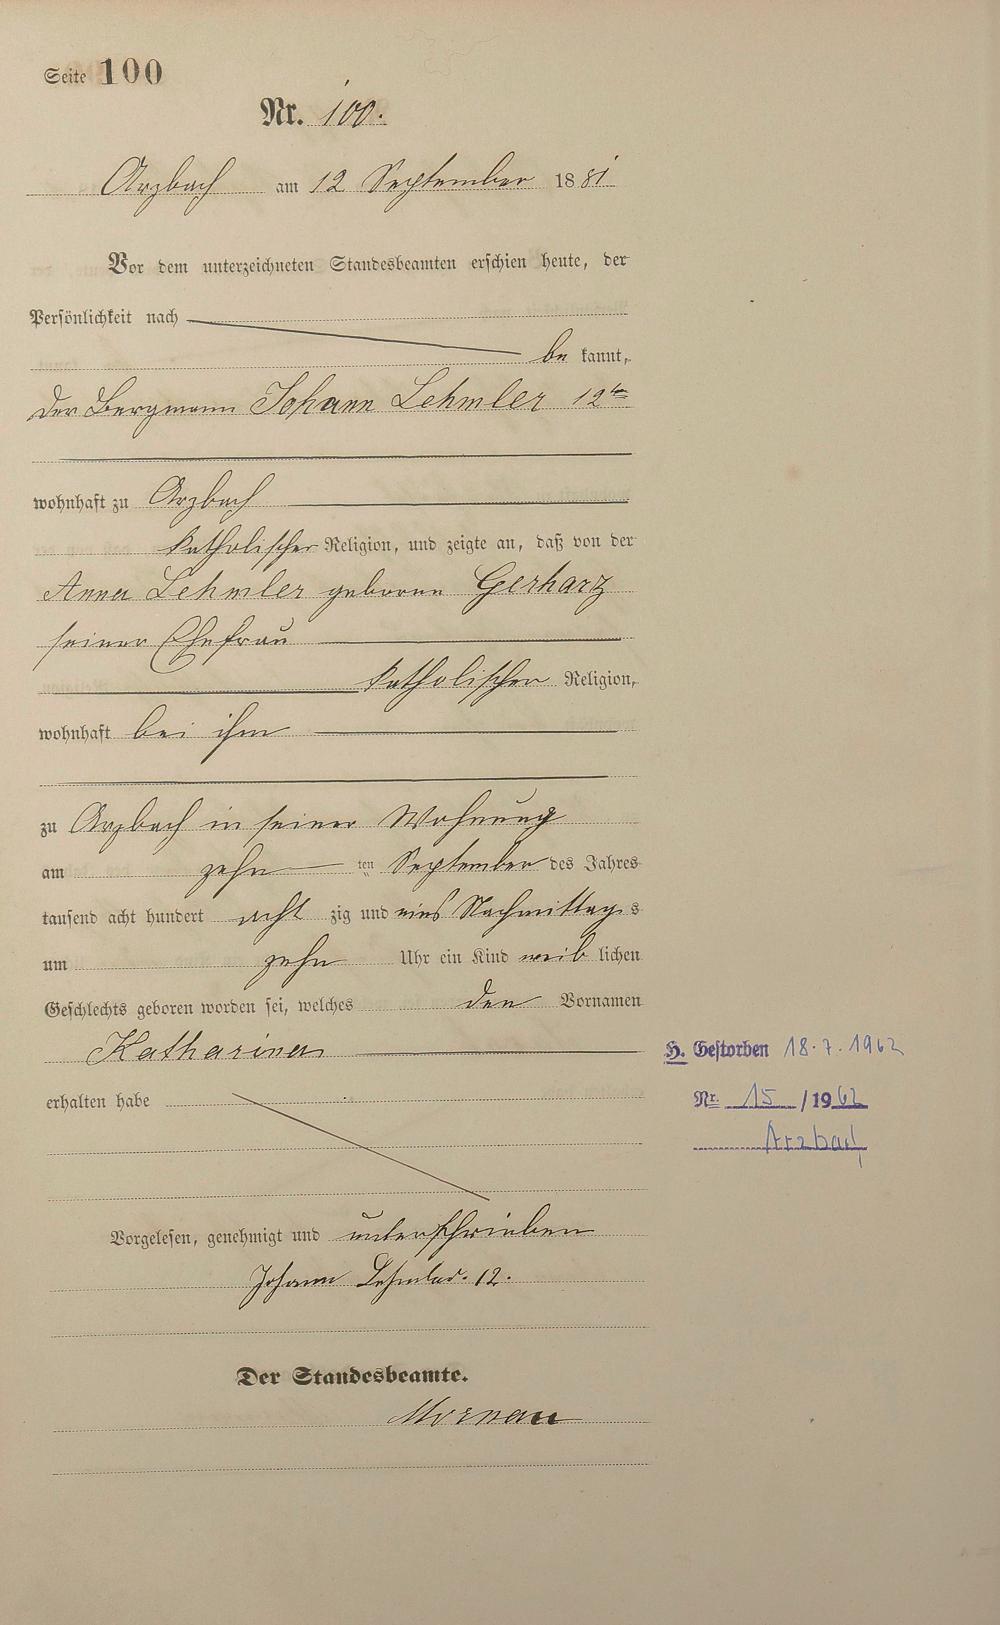 Seite 100
Nr. 100.
Arzbach am 12 September 1881
Vor dem unterzeichneten Standesbeamten erschien heute, der
Persönlichkeit nach
be kannt,
der Bergmann Johann Lehmler 12te
wohnhaft zu Arzbach
katholischer Religion, und zeigte an, daß von der
Anna Lehmler geborene Gerharz
seiner Ehefrau
katholischer Religion,
wohnhaft bei ihm
zu Arzbach in seiner Wohnung
am zehn ten September des Jahres
tausend acht hundert acht zig und eins Nachmittags
um zehn Uhr ein Kind weib lichen
Geschlechts geboren worden sei, welches den Vornamen
Katharina
H. Gestorben 18.7.1962
erhalten habe
Nr. 15 / 1962
Arzbach
Vorgelesen, genehmigt und unterschrieben
Johann Lehmler. 12.
Der Standesbeamte.